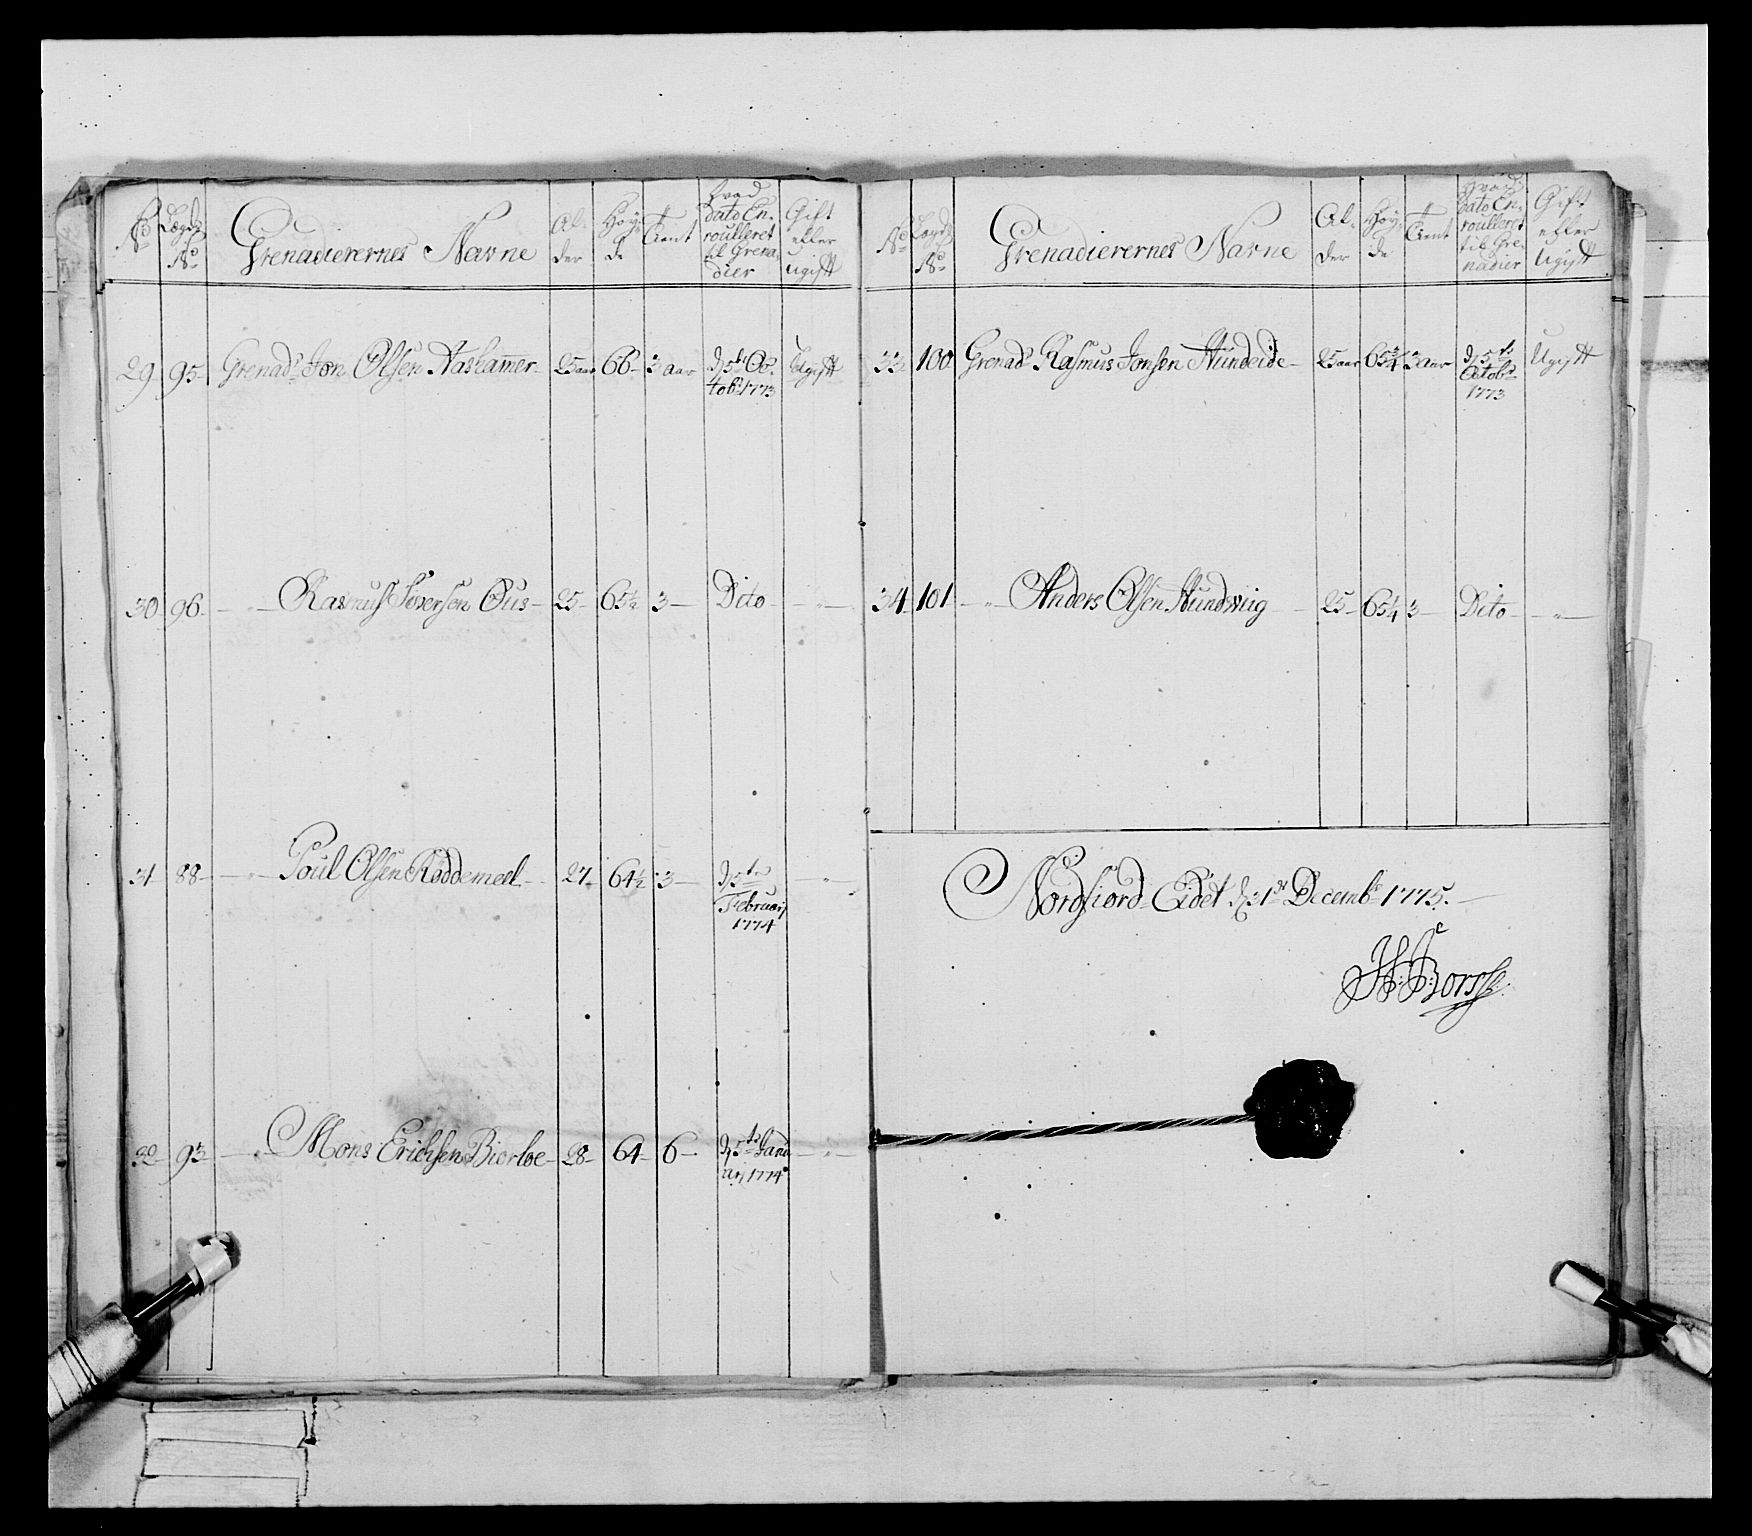 No Lægds No Grenadierernes Navne Al- der Höy- de Tient Hvad dato En- roulleret til Grena- dier Gift eller Ugift
29 95 Grenadr Jon Olsen Aaskammer 25 aar 66 3 aar d: 5te Oc- tobr 1773 Ugift
30 96 - " - Rasmus Iversøn Øus 25 65½ 3 Dito - " -
31 88 - " - Poul Olsen Røddemeel 27 64½ 3 d: 5te Februarj 1774 - " -
32 93 - " - Mons Erichsen Bierloe 28 64 6 d: 5te Janu- arj 1774 - " -
No Lægds No Grenadierernes Navne Al- der Höy- de Tient Hvad dato En- roulleret til Gre- nadier Gift eller Ugift
33 100 Grenadr Rasmus Jonsen Hundeide 25 aar 65¾ 3 aar d: 5te Octobr 1773 Ugift
34 101 - " - Anders Olsen Hundwiig 25 65¼ 3 Dito - " -
Nordfiord Eidet d: 31te Decembr 1775.